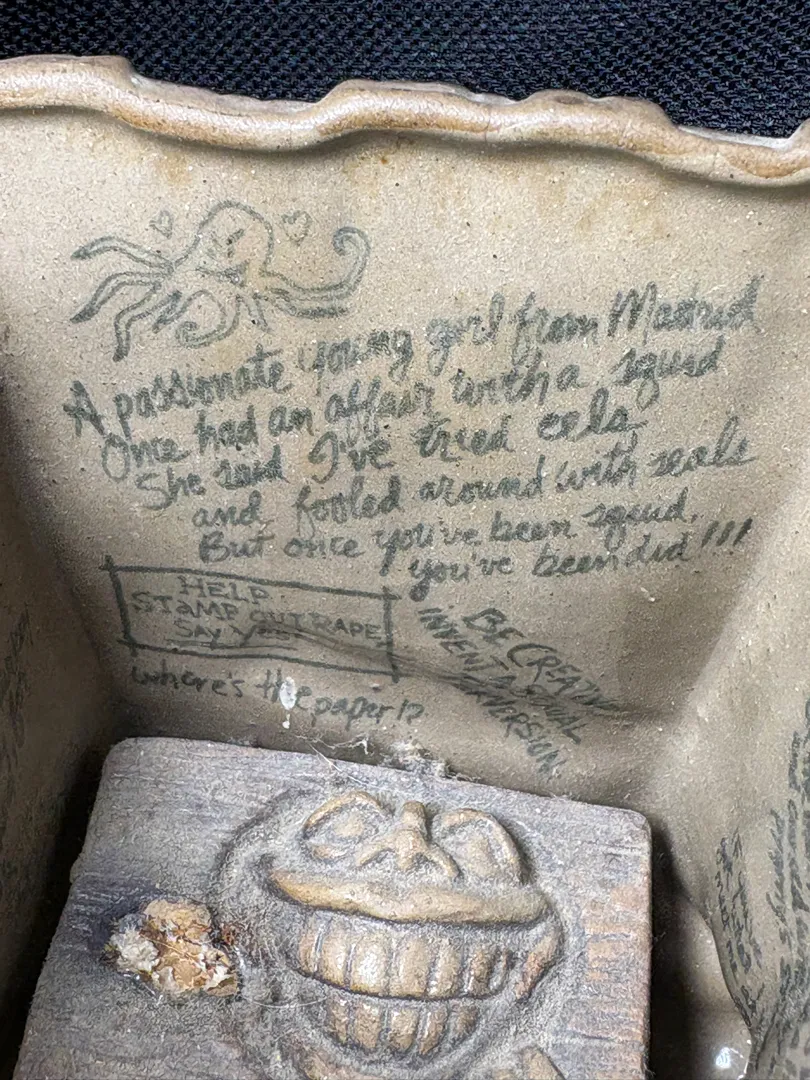 A passionate young girl from Madrid
Once had an affair with a squid
She said I've tried eels
and fooled around with seals
But once you've been squid,
you've been did!!!
HELP
STAMP OUT RAPE
Say Yes
where's the paper!?
BE CREATIVE
INVENT A SEXUAL
PERVERSION